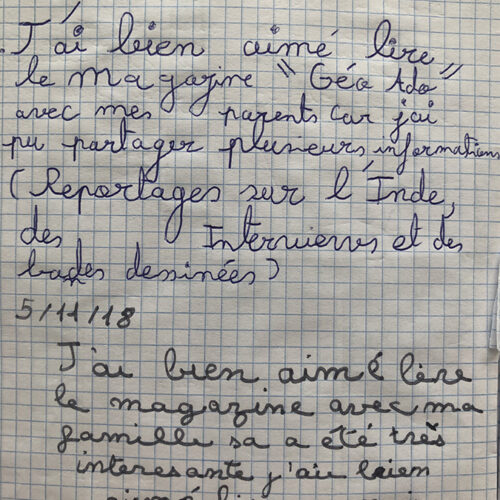 J'ai bien aimé lire
le magazine "Géo Ado"
avec mes parents car j'ai
pu partager plusieurs informations
(Reportages sur l'Inde,
des Interviewes et des
bandes dessinées)
5/11/18
J'ai bien aimé lire
le magazine avec ma
famille sa a été très
interesante j'ai bien
aimé li